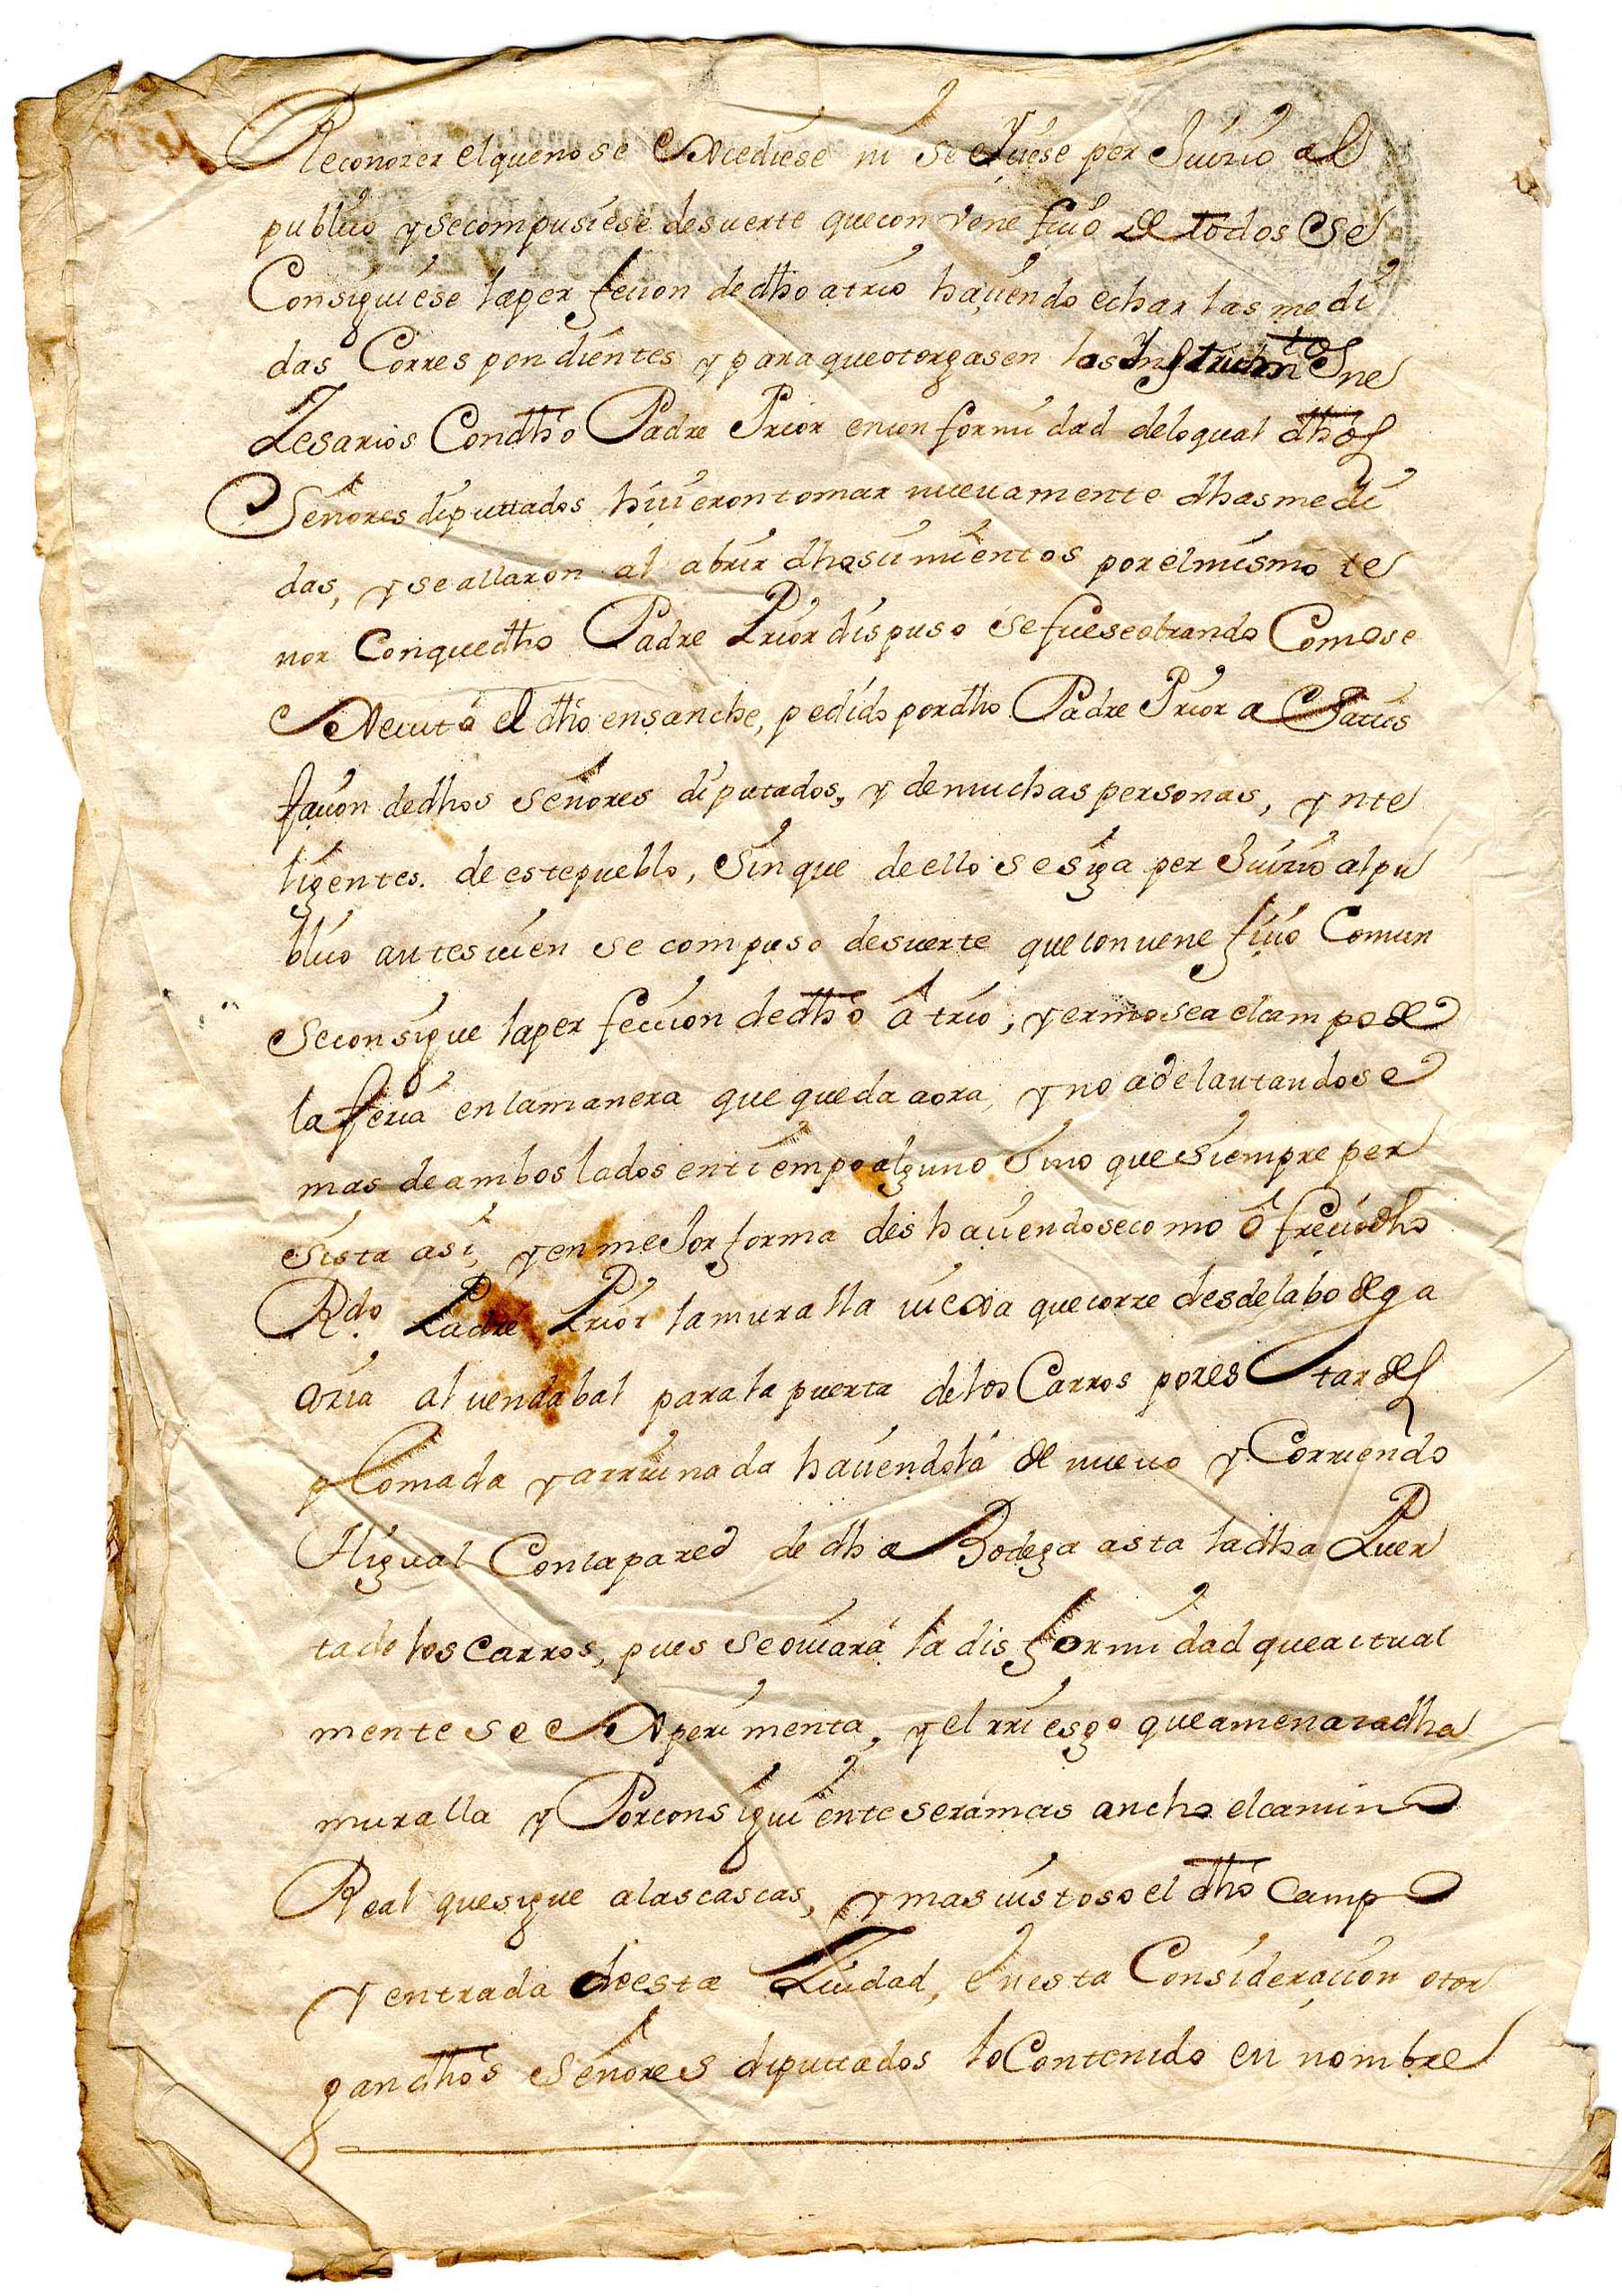 Reconozer el que no se exzediese ni se hiziese perjuizio al
publico y se compusiese de suerte que con venefizio de todos se
Consiguiese la perfecion de dho atrio haziendo echar las medi
das Correspondientes y para que otorgasen los Instrumtos ne
Zesarios Con dho Padre Prior en conformidad de lo qual dhos
Señores diputtados hizieron tomar nuevamente dhas medi
das, y se allaron al abrir dhos zimientos por el mismo te
nor Con que dho Padre Prior dispuso se fuese obrando Como se
executó el dho ensanche, pedido por dho Padre Prior a Satis
façion de dhos señores diputados, y de muchas personas, ynte
ligentes. de este pueblo, Sin que de ello se siga perJuizio al pu
blico antes vien se compuso de suerte que con venefiçio Comun
se consigue la perfeccion de dho atrio, y ermosea el campo de
la feria en la manera que queda aora, y no adelantandose
mas de ambos lados en tiempo alguno Sino que Siempre per
sista asi, y en meJor forma deshaçiendose como ofreció dho
Rdo. Padre Prior la muralla viexa que corre desde la bodega
azia al vendabal para la puerta de los Carros por estar des
plomada y arruinada haçiendola de nuevo y Corriendo
Al igual Con la pared de dha Bodega asta la dha Puer
ta de los carros, pues se oviará la disformidad que actual
mente se experimenta, y el rriesgo que amenaza dha
muralla y Por consiguiente será mas ancho el camino
Real que sigue a las cascas, y mas vistoso el dho Campo
y entrada de esta Ziudad, En esta Consideraçion otor
gan dhos Señores diputtados lo Contenido en nombre